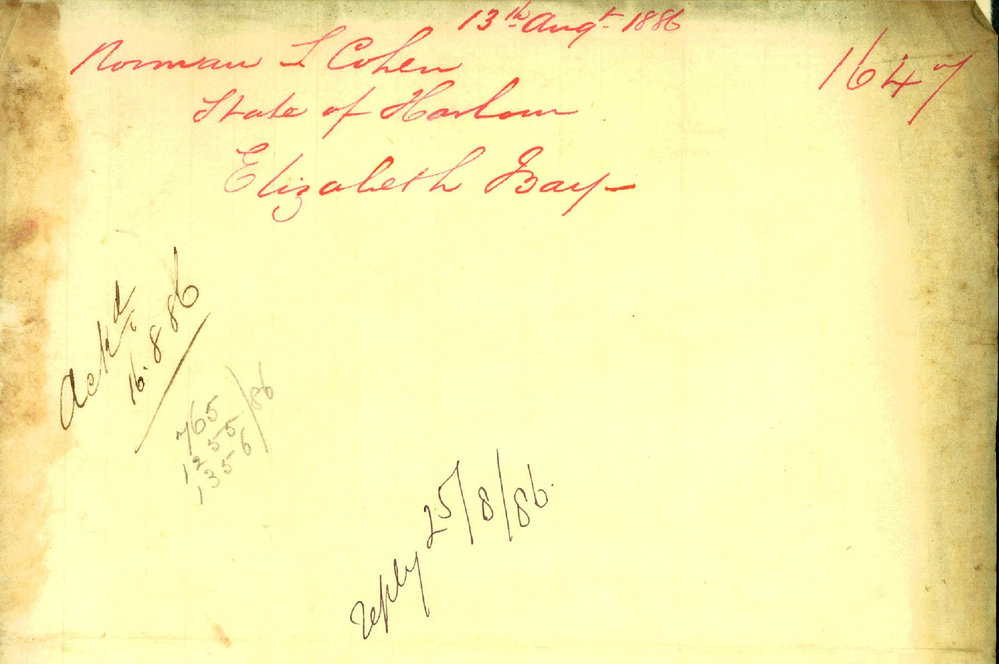 13th Augt. 1886
1647
Norman L Cohen
State of Harbour
Elizabeth Bay -
Ackd.
16.8.86
765
1255
1356 /86
reply 25/8/86.